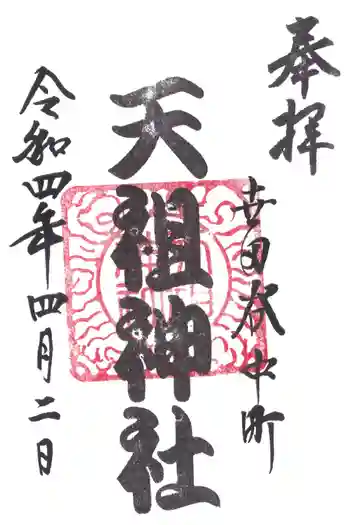 奉拝
世田谷中町
天祖神社
令和四年四月二日